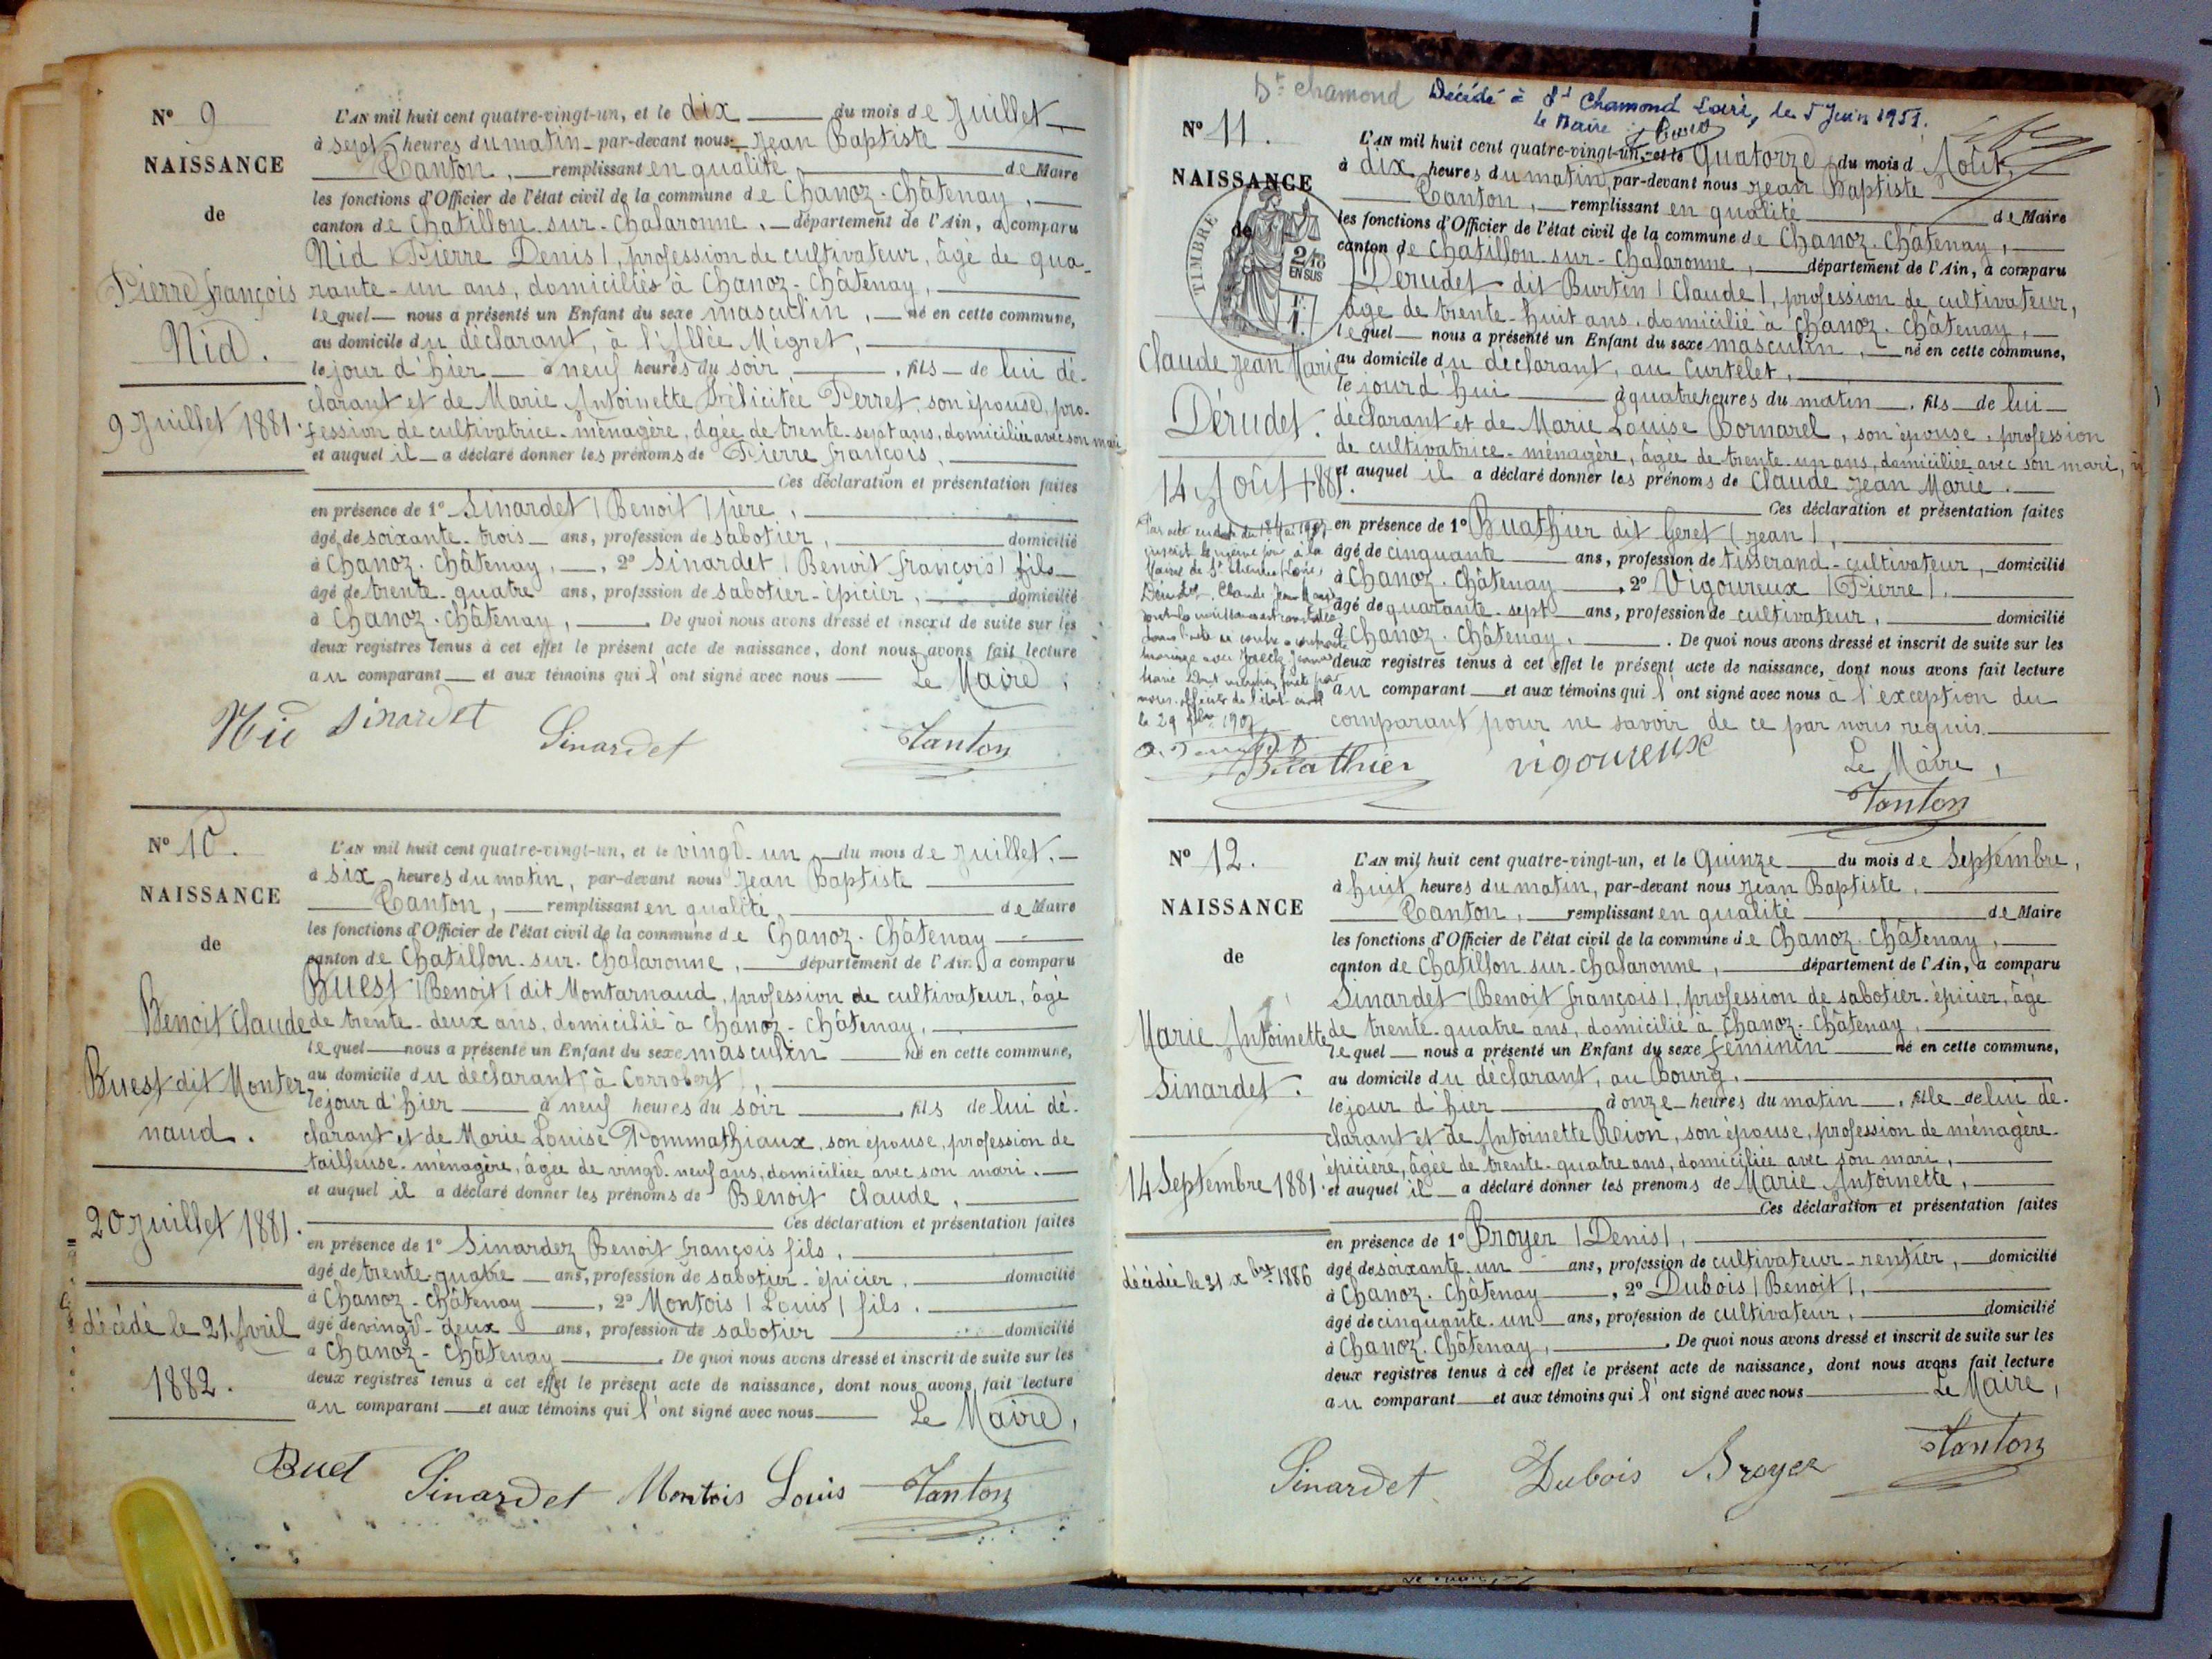 N° 9
NAISSANCE
de
Pierre françois
Nid.
9 Juillet 1881.
L'AN mil huit cent quatre-vingt-un, et le dix du mois de Juillet
à sept heures du matin par-devant nous Jean Baptiste
Tanton, remplissant en qualité de Maire
les fonctions d'Officier de l'état civil de la commune de Chanoz-Châtenay,
canton de Chatillon-sur-Chalaronne, département de l'Ain, a comparu
Nid (Pierre Denis), profession de cultivateur, âgé de qua-
rante-un ans, domiciliés à Chanoz-Châtenay,
lequel nous a présenté un Enfant du sexe masculin, né en cette commune,
au domicile du déclarant, à l'Allée Mégret,
le jour d'hier à neuf heures du soir, fils de lui dé-
clarant et de Marie Antoinette Félicitée Perret, son épouse, pro-
fession de cultivatrice-ménagère, âgée de trente-sept ans, domiciliée avec son mari
et auquel il a déclaré donner les prénoms de Pierre françois,
Ces déclaration et présentation faites
en présence de 1° Sinardet (Benoit) père,
âgé de soixante-trois ans, profession de sabotier, domicilié
à Chanoz-Châtenay, 2° Sinardet (Benoit françois) fils
âgé de trente-quatre ans, profession de sabotier-épicier, domicilié
à Chanoz-Châtenay, De quoi nous avons dressé et inscrit de suite sur les
deux registres tenus à cet effet le présent acte de naissance, dont nous avons fait lecture
au comparant et aux témoins qui l'ont signé avec nous Le Maire,
Nid Sinardet Sinardet Tanton
N° 10.
NAISSANCE
de
Benoit Claude
Buest dit Monter
naud.
20 Juillet 1881.
décédé le 21 Avril
1882.
L'AN mil huit cent quatre-vingt-un, et le vingt-un du mois de Juillet.
à six heures du matin, par-devant nous Jean Baptiste
Tanton, remplissant en qualité de Maire
les fonctions d'Officier de l'état civil de la commune de Chanoz-Châtenay
canton de Chatillon-sur-Chalaronne, département de l'Ain, a comparu
Buest (Benoit) dit Montarnaud, profession de cultivateur, âgé
de trente-deux ans, domicilié à Chanoz-Châtenay,
lequel nous a présenté un Enfant du sexe masculin né en cette commune,
au domicile du déclarant (à Corrobert),
le jour d'hier à neuf heures du soir, fils de lui dé-
clarant et de Marie Louise Pommathiaux, son épouse, profession de
tailleuse-ménagère, âgée de vingt-neuf ans, domiciliée avec son mari.
et auquel il a déclaré donner les prénoms de Benoit Claude,
Ces déclaration et présentation faites
en présence de 1° Sinardez Benoit françois fils,
âgé de trente-quatre ans, profession de sabotier-épicier, domicilié
à Chanoz-Châtenay, 2° Montois (Louis) fils.
âgé de vingt-deux ans, profession de sabotier domicilié
à Chanoz-Châtenay. De quoi nous avons dressé et inscrit de suite sur les
deux registres tenus à cet effet le présent acte de naissance, dont nous avons fait lecture
au comparant et aux témoins qui l'ont signé avec nous Le Maire,
Buet Sinardet Montois Louis Tanton
St Chamond Décédé à St Chamond Loire, le 5 Juin 1951.
le Maire
N° 11.
NAISSANCE
de
TIMBRE
2/10
EN SUS
Claude Jean Marie
Dérudet.
14 Août 1881.
L'AN mil huit cent quatre-vingt-un, et le Quatorze du mois d'Août,
à dix heures du matin, par-devant nous Jean Baptiste
Tanton, remplissant en qualité de Maire
les fonctions d'Officier de l'état civil de la commune de Chanoz-Châtenay,
canton de Chatillon-sur-Chalaronne, département de l'Ain, a comparu
Dérudet dit Burtin (Claude), profession de cultivateur,
âgé de trente-huit ans, domicilié à Chanoz-Châtenay,
lequel nous a présenté un Enfant du sexe masculin, né en cette commune,
au domicile du déclarant, au Curtelet,
le jourd'hui à quatre heures du matin, fils de lui
déclarant et de Marie Louise Bornarel, son épouse, profession
de cultivatrice-ménagère, âgée de trente-un ans, domiciliée avec son mari,
et auquel il a déclaré donner les prénoms de Claude Jean Marie.
Ces déclaration et présentation faites
en présence de 1° Buathier dit Geret (Jean),
âgé de cinquante ans, profession de tisserand-cultivateur, domicilié
à Chanoz-Châtenay, 2° Vigoureux (Pierre),
âgé de quarante-sept ans, profession de cultivateur, domicilié
à Chanoz-Châtenay. De quoi nous avons dressé et inscrit de suite sur les
deux registres tenus à cet effet le présent acte de naissance, dont nous avons fait lecture
au comparant et aux témoins qui l'ont signé avec nous à l'exception du
comparant pour ne savoir de ce par nous requis.
Par acte en date du 18 Mai 1907
inscrit le même jour à la
Mairie de St Etienne (Loire)
Dérudet, Claude Jean Marie
dont la naissance est constatée
dans l'acte ci contre a contracté
mariage avec
Marie Dont mention faite par
nous officier de l'état civil
le 29 1907
Buathier vigoureux Le Maire,
Tanton
N° 12.
NAISSANCE
de
Marie Antoinette
Sinardet.
14 Septembre 1881.
décédée le 31 xbre 1886
L'AN mil huit cent quatre-vingt-un, et le Quinze du mois de Septembre,
à huit heures du matin, par-devant nous Jean Baptiste,
Tanton, remplissant en qualité de Maire
les fonctions d'Officier de l'état civil de la commune de Chanoz-Châtenay,
canton de Chatillon-sur-Chalaronne, département de l'Ain, a comparu
Sinardet (Benoit françois), profession de sabotier-épicier, âgé
de trente-quatre ans, domicilié à Chanoz-Châtenay,
lequel nous a présenté un Enfant du sexe féminin né en cette commune,
au domicile du déclarant, au Bourg.
le jour d'hier à onze heures du matin, fille de lui dé-
clarant et de Antoinette Reion, son épouse, profession de ménagère-
épicière, âgée de trente-quatre ans, domiciliée avec son mari,
et auquel il a déclaré donner les prénoms de Marie Antoinette,
Ces déclaration et présentation faites
en présence de 1° Broyer (Denis),
âgé de soixante-un ans, profession de cultivateur-rentier, domicilié
à Chanoz-Châtenay, 2° Dubois (Benoit),
âgé de cinquante-un ans, profession de cultivateur, domicilié
à Chanoz-Châtenay, De quoi nous avons dressé et inscrit de suite sur les
deux registres tenus à cet effet le présent acte de naissance, dont nous avons fait lecture
au comparant et aux témoins qui l'ont signé avec nous Le Maire,
Sinardet Dubois Broyer Tanton